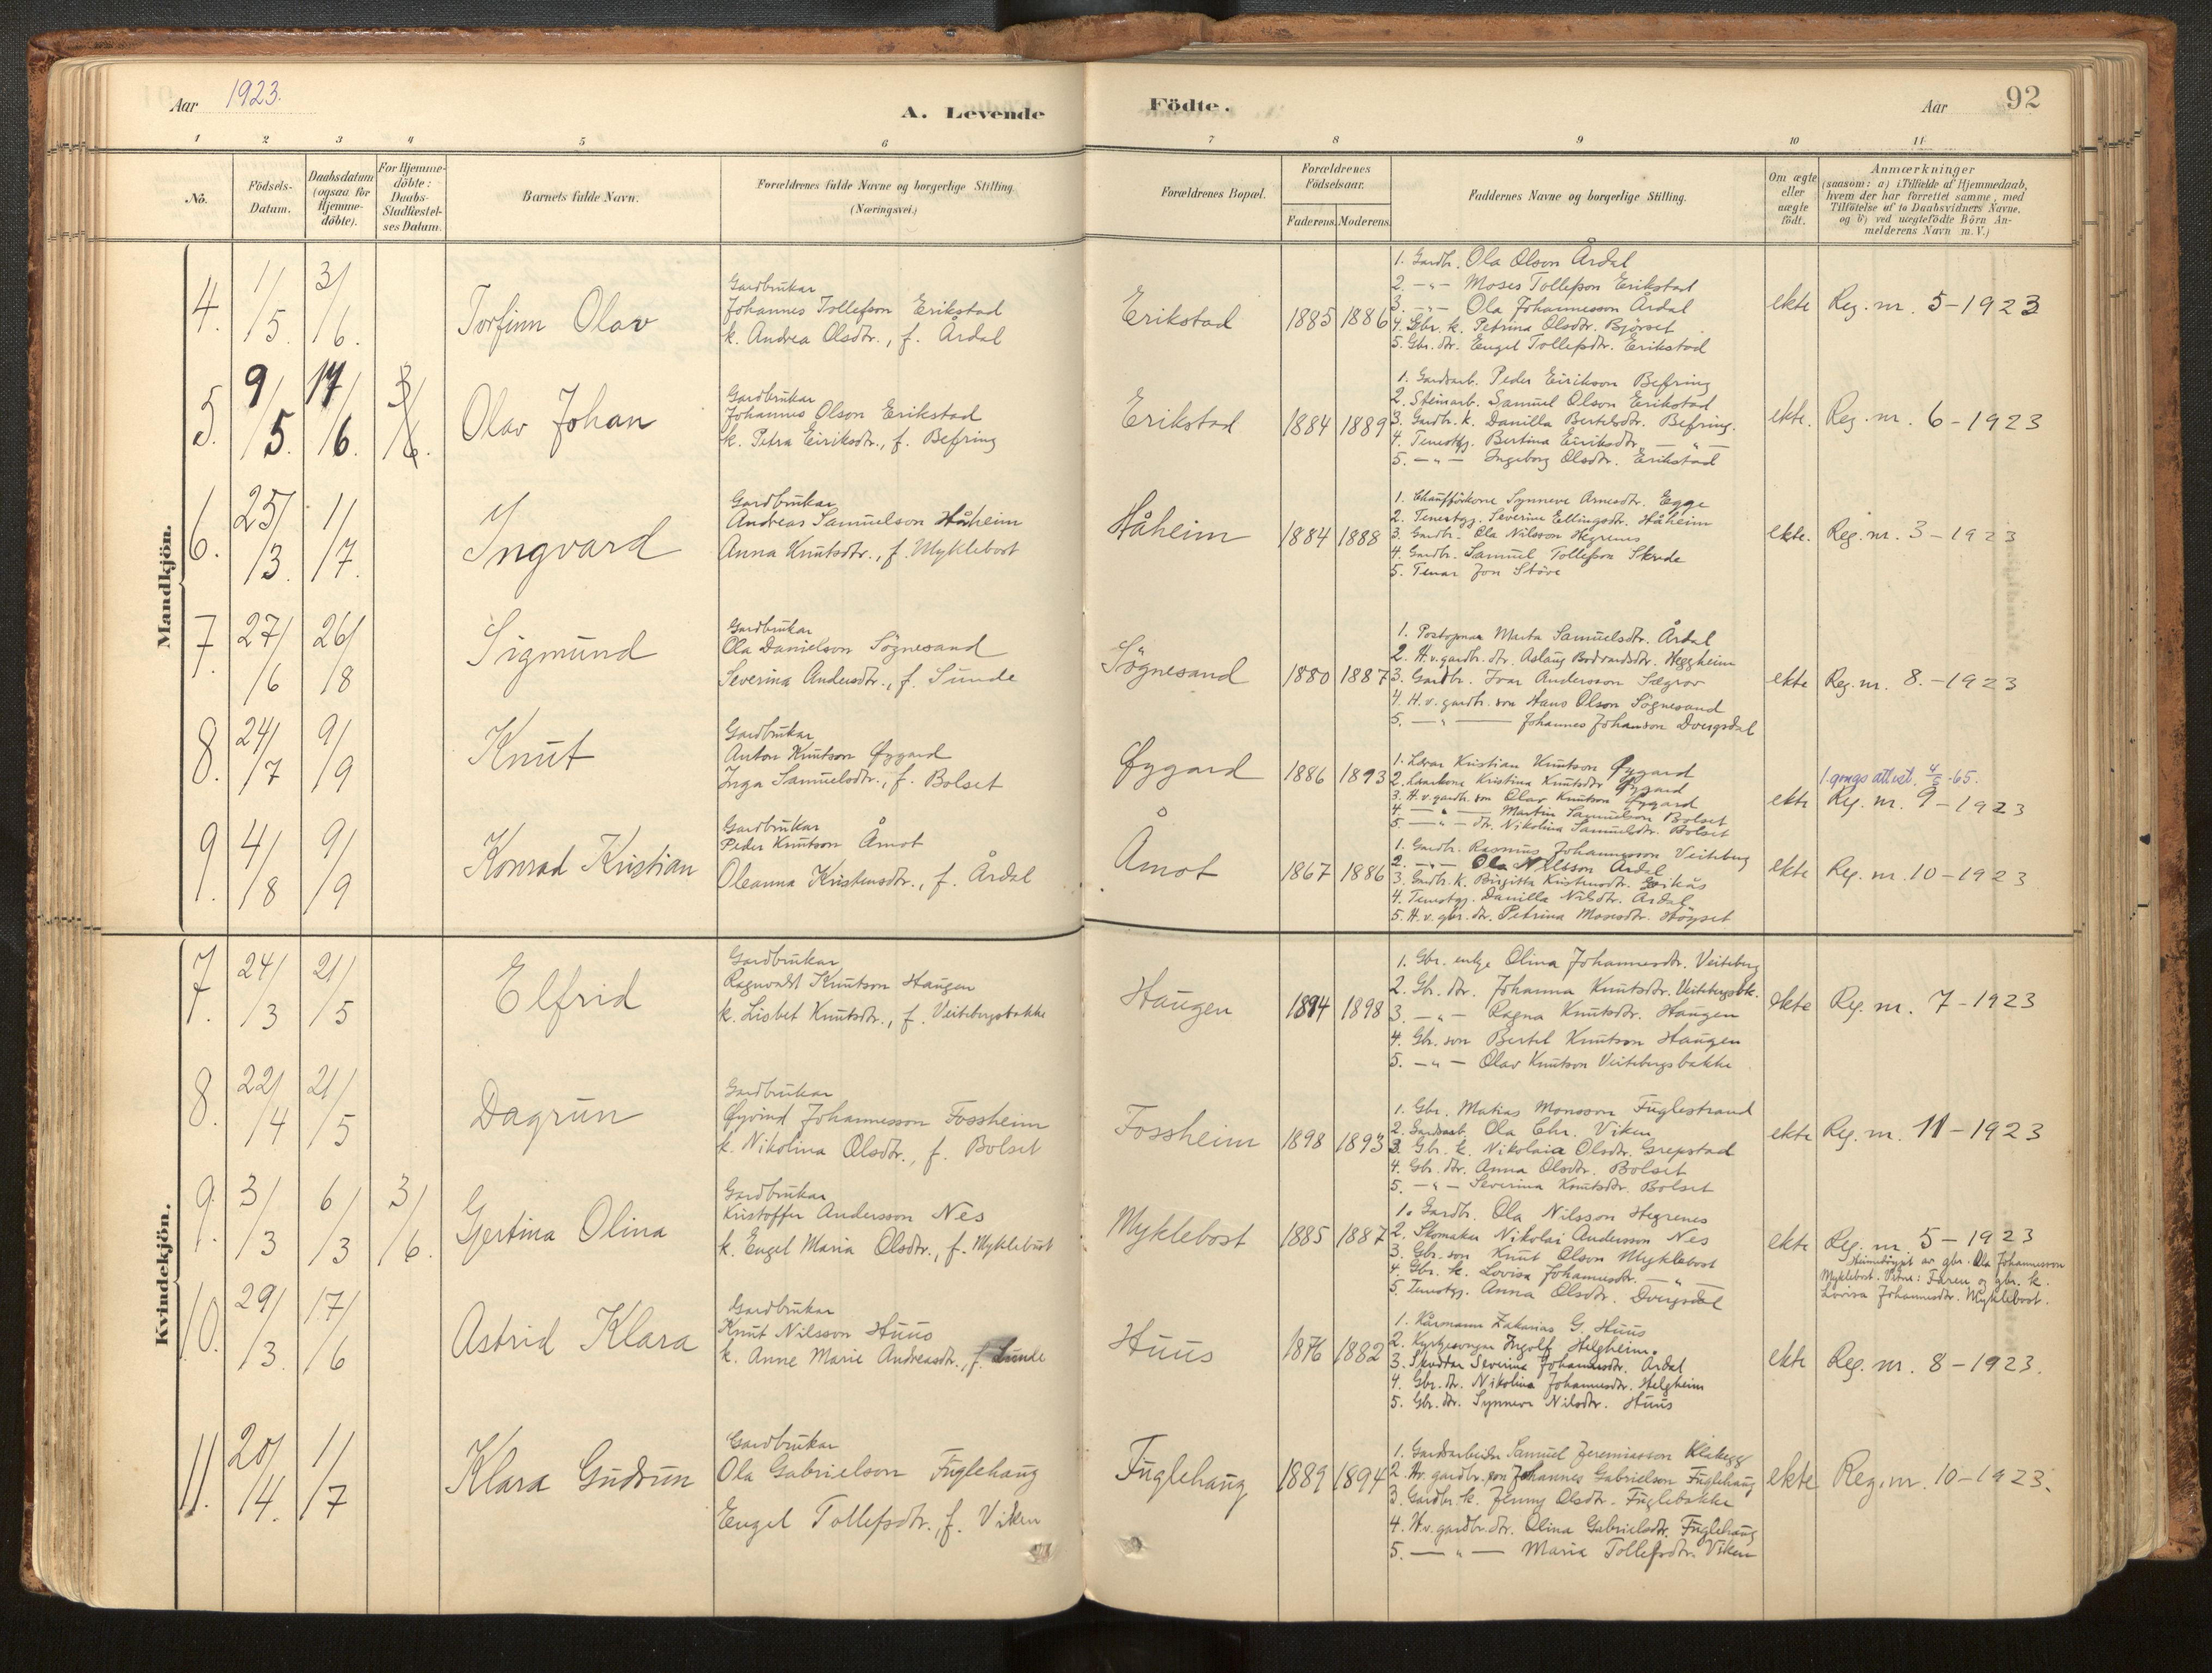 Aar 1923.
A. Levende
Födte.
Aar
92
1 2 3 4 5 6 7 8 9 10 11
No.
Födsels-
Datum.
Daabsdatum
(ogsaa for
Hjemme-
döbte).
For Hjemme-
döbte:
Daabs-
Stadfæstel-
ses Datum.
Barnets fulde Navn.
Forældrenes fulde Navne og borgerlige Stilling
(Næringsvei.)
Forældrenes Bopæl.
Forældrenes
Födselsaar.
Faderens. Moderens.
Faddernes Navne og borgerlige Stilling.
Om ægte
eller
uægte
födt.
Anmærkninger
(saasom: a) i Tilfælde af Hjemmedaab,
hvem der har forrettet samme, med
Tilföielse af to Daabsvidners Navne,
og b) ved uægtefödte Börn An-
melderens Navn m. V.)
Mandkjön.
4. 1/5. 3/6. Torfinn Olav
Gardbrukar
Johannes Tollefson Erikstad
k. Andrea Olsdtr., f. Årdal
Erikstad 1885 1886
1. Gardbr. Ola Olson Årdal
2. —"— Moses Tollefson Erikstad
3. —"— Ola Johannesson Årdal
4. Gbr. k. Petrina Olsdtr. Bjørset
5. Gbr. dtr. Engel Tollefsdtr. Erikstad
ekte Reg. nr. 5-1923
5. 9/5. 17/6. 3/6. Olav Johan
Gardbrukar
Johannes Olson Erikstad
k. Petra Eiriksdtr., f. Befring
Erikstad 1884 1889
1. Gardsarb. Peder Eirikson Befring
2. Steinarb. Samuel Olson Erikstad
3. Gardbr. k. Danilla Bertelsdtr. Befring.
4. Tenestgj. Bertina Eiriksdtr. —"—
5. —"— Ingeborg Olsdtr. Erikstad
ekte. Reg. nr. 6-1923
6. 25/3. 1/7. Ingvard
Gardbrukar
Andreas Samuelson Håheim
Anna Knutsdtr., f. Myklebost
Håheim 1884 1888
1. Chaufførkone Synneve Arnesdtr. Egge
2. Tenestgj. Severine Ellingsdtr. Håheim
3. Gardbr. Ola Nilsson Hegrenes
4. Gardbr. Samuel Tollefson Skrede
5. Tenar Jon Støve
ekte. Reg. nr. 3-1923
7. 27/6 26/8 Sigmund
Gardbrukar
Ola Danielson Sögnesand
Severina Andersdtr., f. Sunde
Sögnesand 1880 1887
1. Marta Samuelsdtr. Årdal
2. H.v. gardbr. dtr. Aslaug Bodvardsdtr. Heggheim
3. Gardbr. Ivar Andersson Sægrov
4. H. v. gardb. son Hans Olson Sögnesand
5. —"— Johannes Johanson Dvergsdal
ekte Reg. nr. 8.-1923
8. 24/7 9/9 Knut
Gardbrukar
Anton Knutson Øygard
Inga Samuelsdtr., f. Bolset
Øygard 1886 1893
1. Lærar Kristian Knutson Øygard
2. Kristina Knutsdtr Øygard
3. H.v. gardb. son Olav Knutson Øygard
4. —"— Martin Samuelson Bolset
5. —"— dtr. Nikolina Samuelsdtr. Bolset
ekte
1. gongs attest. 4/5-65.
Reg. nr. 9-1923
9. 4/8 9/9 Konrad Kristian
Gardbrukar
Peder Knutson Åmot
Oleanna Kristensdtr., f. Årdal
Åmot 1867 1886
1. Gardb. Rasmus Johannesson Veiteberg
2. —"— Ola Nilsson Årdal
3. Gardb. k. Birgitta Kristensdtr. Eikås
4. Tenestgj. Danilla Nilsdtr. Årdal
5. H. v. gbr. dtr. Petrina Mosesdtr. Høyset
ekte Reg. nr. 10-1923
Kvindekjön.
7. 24/3 21/5 Elfrid
Gardbrukar
Ragnvald Knutson Haugen
k. Lisbet Knutsdtr., f. Veitebergsbakke
Haugen 1894 1898
1. Gbr. enkje Olina Johannesdtr. Veiteberg
2. Gbr. dtr. Johanna Knutsdtr. Veitebergsbk.
3. —"— Ragna Knutsdtr. Haugen
4. Gbr. son Bertel Knutson Haugen
5. —"— Olav Knutson Veitebergsbakke
ekte Reg. nr. 7-1923
8. 22/4 21/5 Dagrun
Gardbrukar
Øyvind Johannesson Fossheim
k. Nikolina Olsdtr., f. Bolset
Fossheim 1898 1893
1. Gbr. Matias Monsson Fuglestrand
2. Gardsarb. Ola Chr. Viken
3. Gbr. k. Nikolaia Olsdtr. Grepstad
4. Gbr. dtr. Anna Olsdtr. Bolset
5. —"— Severina Knutsdtr. Bolset
ekte Reg. nr. 11-1923
9. 3/3 6/3 3/6. Gjertina Olina
Gardbrukar
Kristoffer Andersson Nes
k. Engel Maria Olsdtr., f. Myklebust
Myklebost 1885 1887
1. Gardb. Ola Nilsson Hegrenes
2. Skomaker Nikolai Andersson Nes
3. Gbr. son Knut Olson Myklebost
4. Gbr. k. Lovisa Johannesdtr. —"—
5. Tenestgj. Anna Olsdtr. Dvergsdal
ekte Reg. nr. 5-1923
Heimedøypt av gbr. Ola Johannesson
Myklebost. Vitne: Faren og gbr. k.
Lovisa Johannesdtr. Myklebost.
10. 29/3. 17/6 Astrid Klara
Gardbrukar
Knut Nilsson Huus
k. Anne Marie Andreasdtr., f. Sunde
Huus 1876 1882
1. Zakarias G. Huus
2. Kyrkjesongar Ingolf Helgheim.
3. Severina Johannesdtr. Årdal
4. Gbr. dtr. Nikolina Johannesdtr. Helgheim
5. Gbr. dtr. Synneve Nilsdtr. Huus
ekte Reg. nr. 8-1923.
11. 20/4. 1/7 Klara Gudrun
Gardbrukar
Ola Gabrielson Fuglehaug
Engel Tollefsdtr., f. Viken
Fuglehaug 1889 1894
1. Gardsarbeider Samuel Jeremiasson Klakegg
2. Hv. gardbr. son Johannes Gabrielson Fuglehaug
3. Gardbr. k. Jenny Olsdtr. Fuglebakke
4. H.v. gardbr. dtr. Olina Gabrielsdtr. Fuglehaug
5. —"— Maria Tollefsdtr. Viken
ekte Reg. nr. 10-1923.